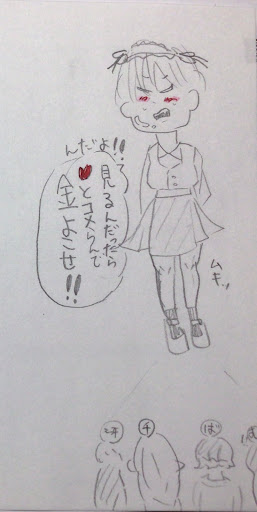 んだよ!!
見るんだったら
♥とコメらんで
金よこせ!!
ムキッ
チ
ば